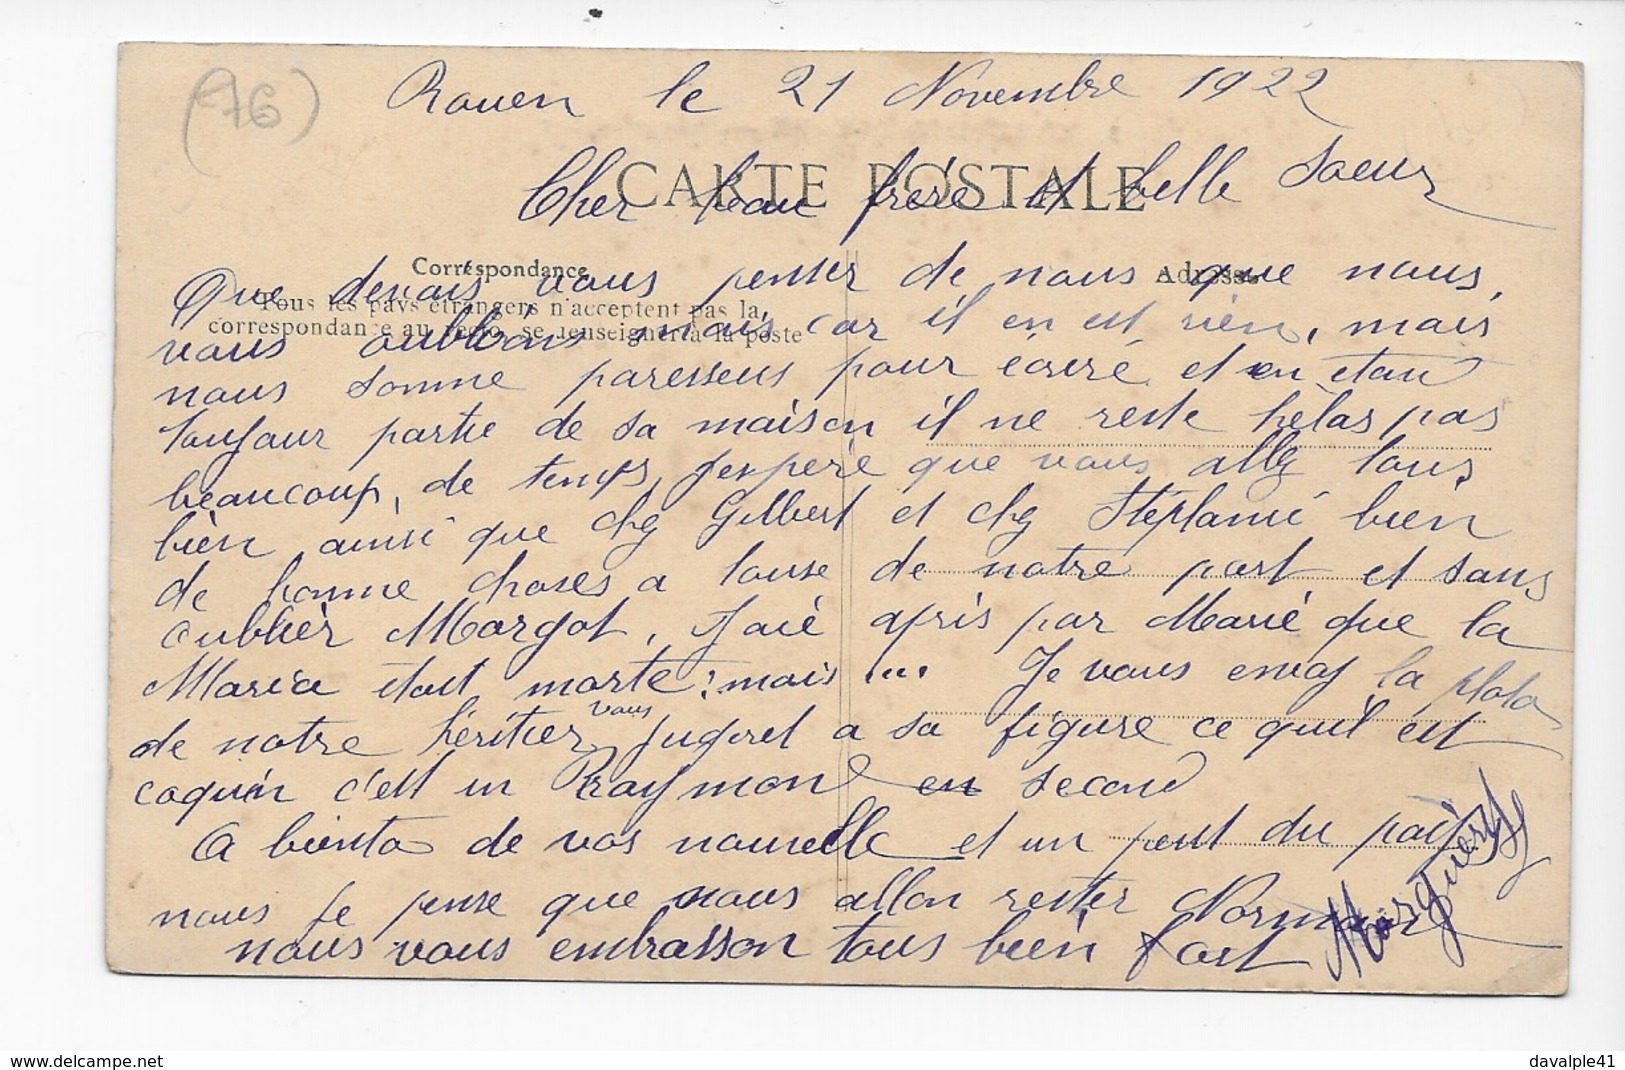 (76)
Rouen le 21 Novembre 1922
CARTE POSTALE
Cher beau frère et belle soeur
Correspondance
Adresse
Tous les pays étrangers n'acceptent pas la
correspondance au recto, se renseigner à la poste
Que devais vous penser de nous que nous,
vous oublions mais car il en est rien, mais
nous somme paresseus pour écriré et en etan
toujour partie de sa maison il ne reste hélas pas
beaucoup, de temps, J'espère que vous allez tous
bien ainsi que chez Gilbert et chez Stéphanie bien
de bonne choses a tous de notre part et sans
oublier Margot, J'aie apris par Marie que la
Maria etait morte; mais ... Je vous envoy la photo
de notre héritier vous jugerer a sa figure ce quil est
coquin c'est un Raymond en second
A bientot de vos nouvelle et un peut du pays
nous je pense que nous allon rester Normand
nous vous embrasson tous bien fort
Marguerite
davalple41